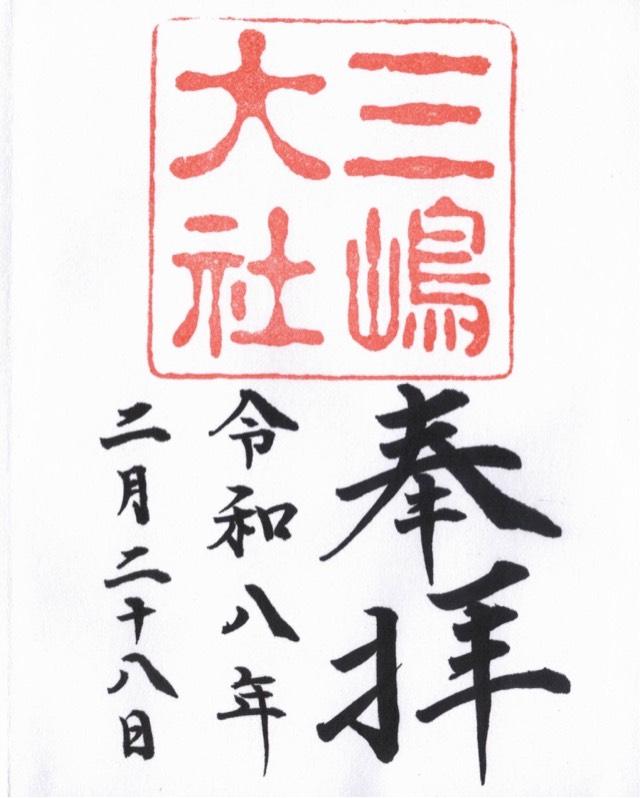 三嶋
大社
奉拝
令和八年
二月二十八日